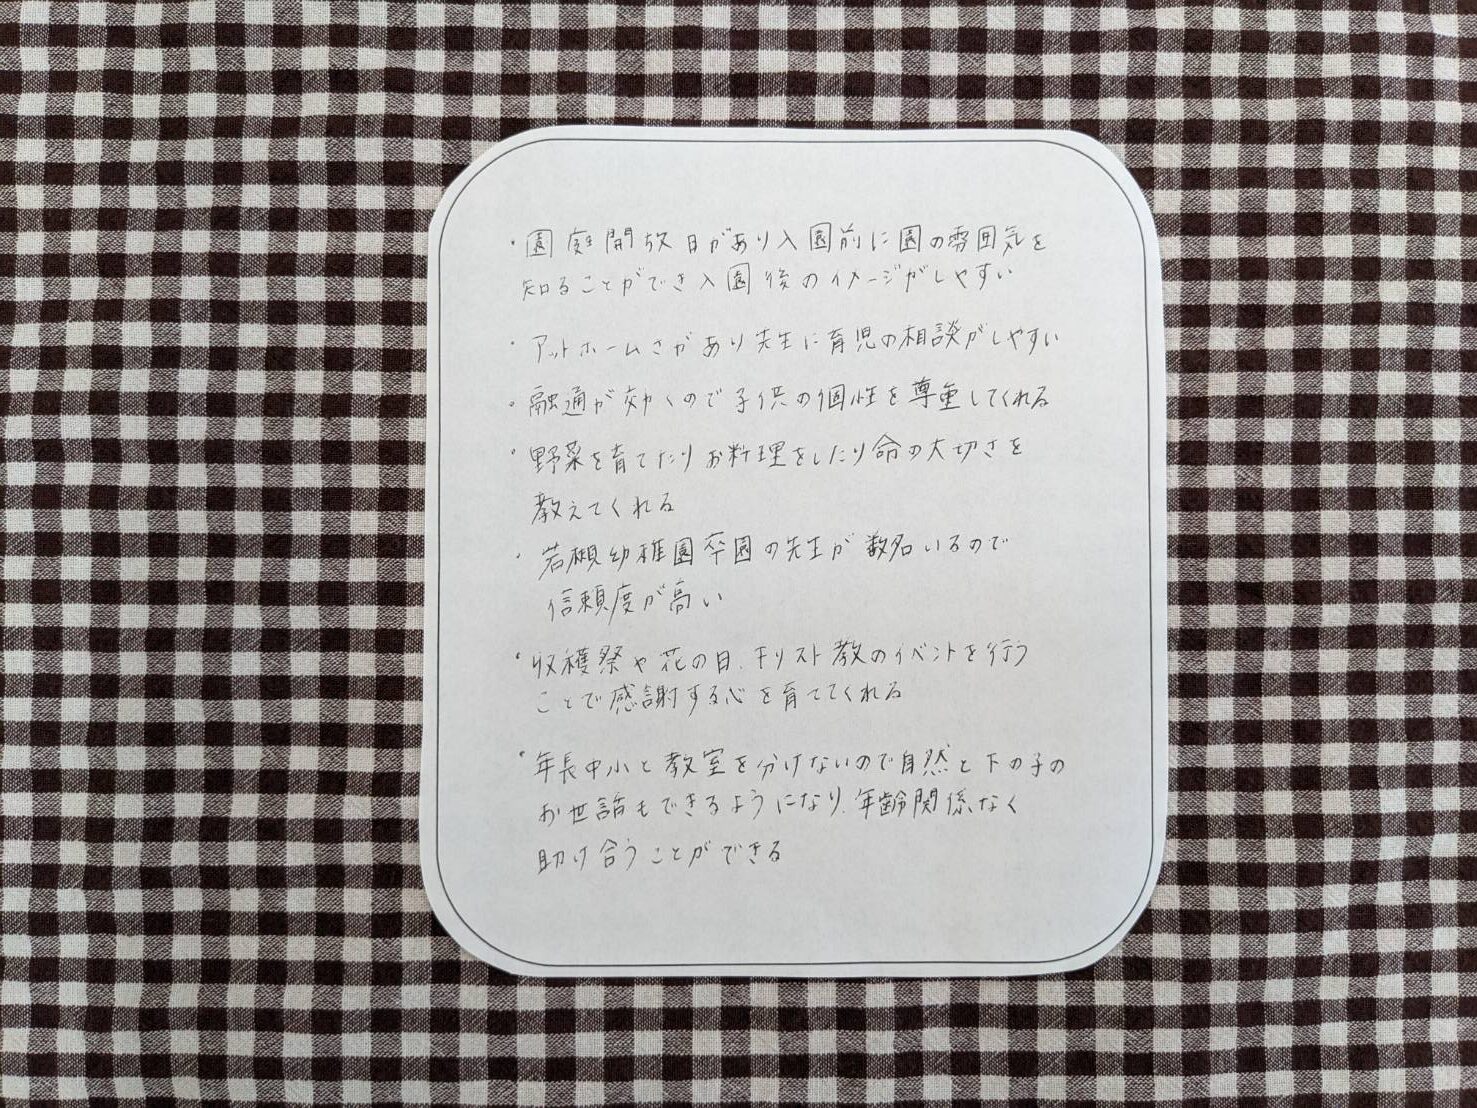 ・園庭開放日があり入園前に園の雰囲気を
知ることができ入園後のイメージがしやすい
・アットホームさがあり先生に育児の相談がしやすい
・融通が効くので子供の個性を尊重してくれる
・野菜を育てたりお料理をしたり命の大切さを
教えてくれる
・若槻幼稚園卒園の先生が数名いるので
信頼度が高い
・収穫祭や花の日、キリスト教のイベントを行う
ことで感謝する心を育ててくれる
・年長中小と教室を分けないので自然と下の子の
お世話もできるようになり、年齢関係なく
助け合うことができる